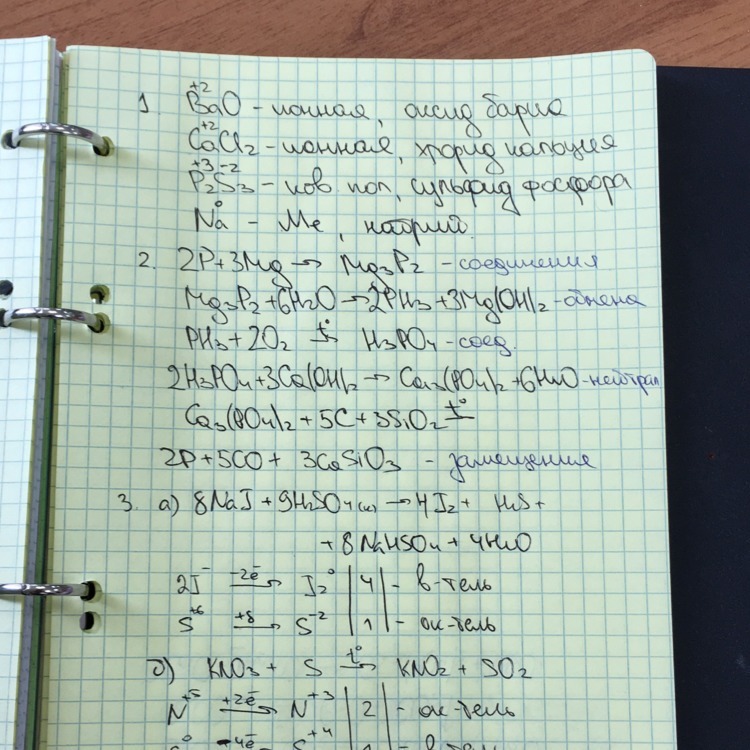 1. Ba⁺²O - ионная, оксид бария
Ca⁺²Cl₂ - ионная, хлорид кальция
P₂⁺³S₃⁻² - ков пол, сульфид фосфора
Na⁰ - Me, натрий
2. 2P + 3Mg → Mg₃P₂ - соединения
Mg₃P₂ + 6H₂O → 2PH₃ + 3Mg(OH)₂ - обмена
PH₃ + 2O₂ →(t°) H₃PO₄ - соед.
2H₃PO₄ + 3Ca(OH)₂ → Ca₃(PO₄)₂ + 6H₂O - нейтрал
Ca₃(PO₄)₂ + 5C + 3SiO₂ →(t°)
2P + 5CO + 3CaSiO₃ - замещения
3. а) 8NaI + 9H₂SO₄(к) → 4I₂ + H₂S +
+ 8NaHSO₄ + 4H₂O
2I⁻ →(-2ē) I₂⁰ | 4 | - в-тель
S⁺⁶ →(+8) S⁻² | 1 | - ок-тель
б) KNO₃ + S →(t°) KNO₂ + SO₂
N⁺⁵ →(+2ē) N⁺³ | 2 | - ок-тель
S⁰ →(-4ē) S⁺⁴ | 1 | - в-тель